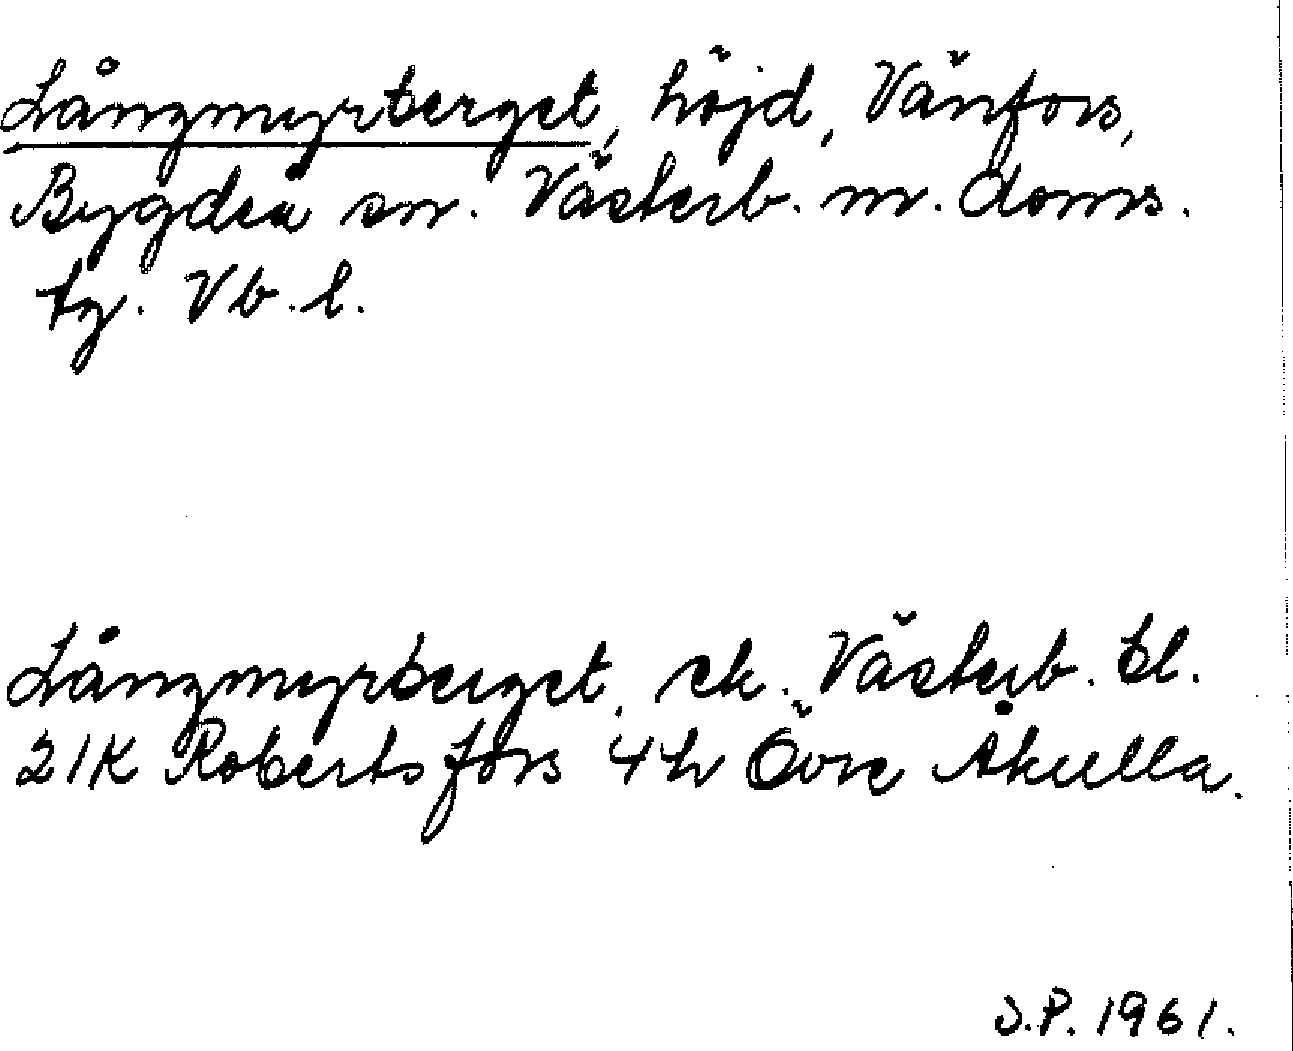 Långmyrberget, höjd, Vänfors,
Bygdeå sn. Västerb. m. doms.
tg. Vb. l.
Långmyrberget, ek. Västerb. bl.
21K Robertsfors 4h Övre Åkulla.
J.P. 1961.